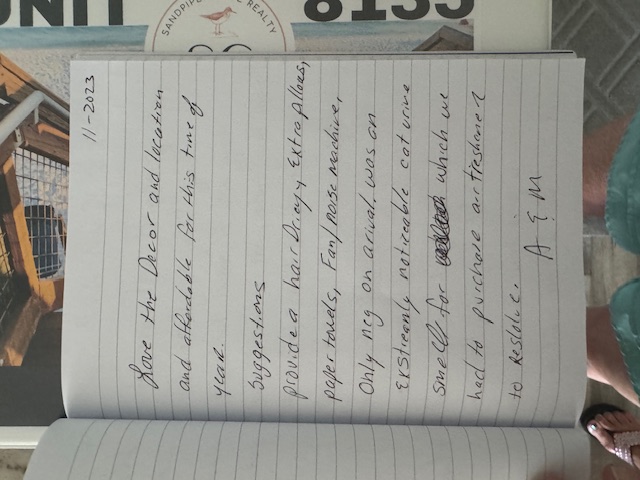 UNIT 8135
SANDPIPER REALTY
11-2023
Love the Decor and location
and affordable for this time of
year.
Suggestions
provide a hair Dryer, Extra pillows,
paper towels, Fan/noise machine,
Only neg on arival was an
Exstreamly noticeable cat urine
smell for which we
had to purchase air freshener
to resolve.
A & M